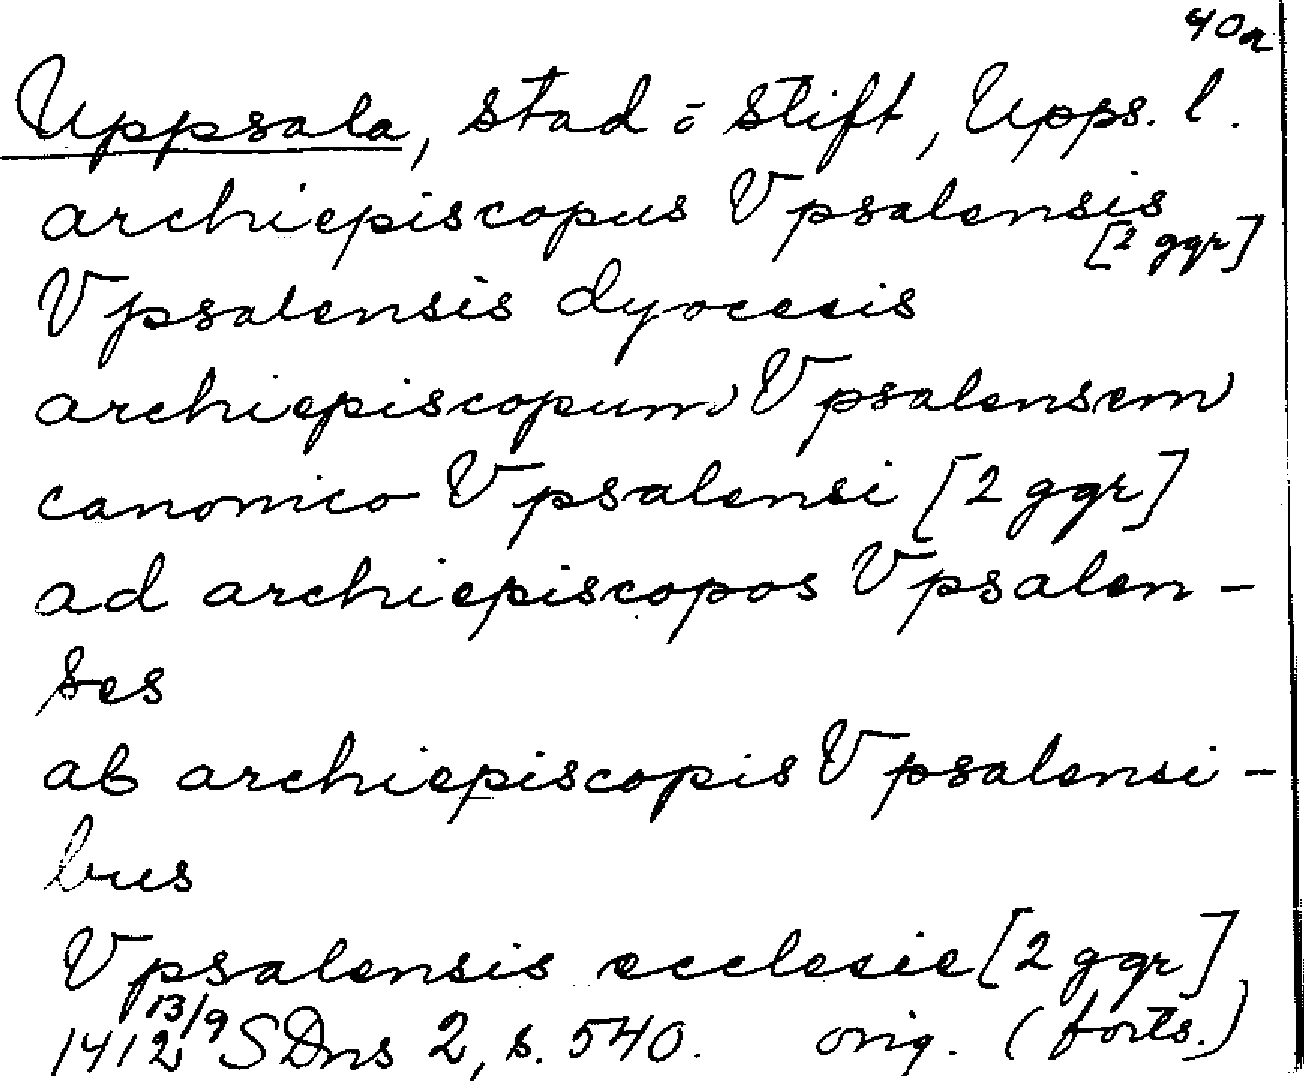 40a
Uppsala, stad o stift, Upps. l.
archiepiscopus Vpsalensis
[2 ggr]
Vpsalensis dyocesis
archiepiscopum Vpsalensem
canonico Vpsalensi [2 ggr]
ad archiepiscopos Vpsalen-
ses
ab archiepiscopis Vpsalensi-
bus
Vpsalensis ecclesie [2 ggr]
1412 13/9 SDns 2, s. 540. orig. (forts.)